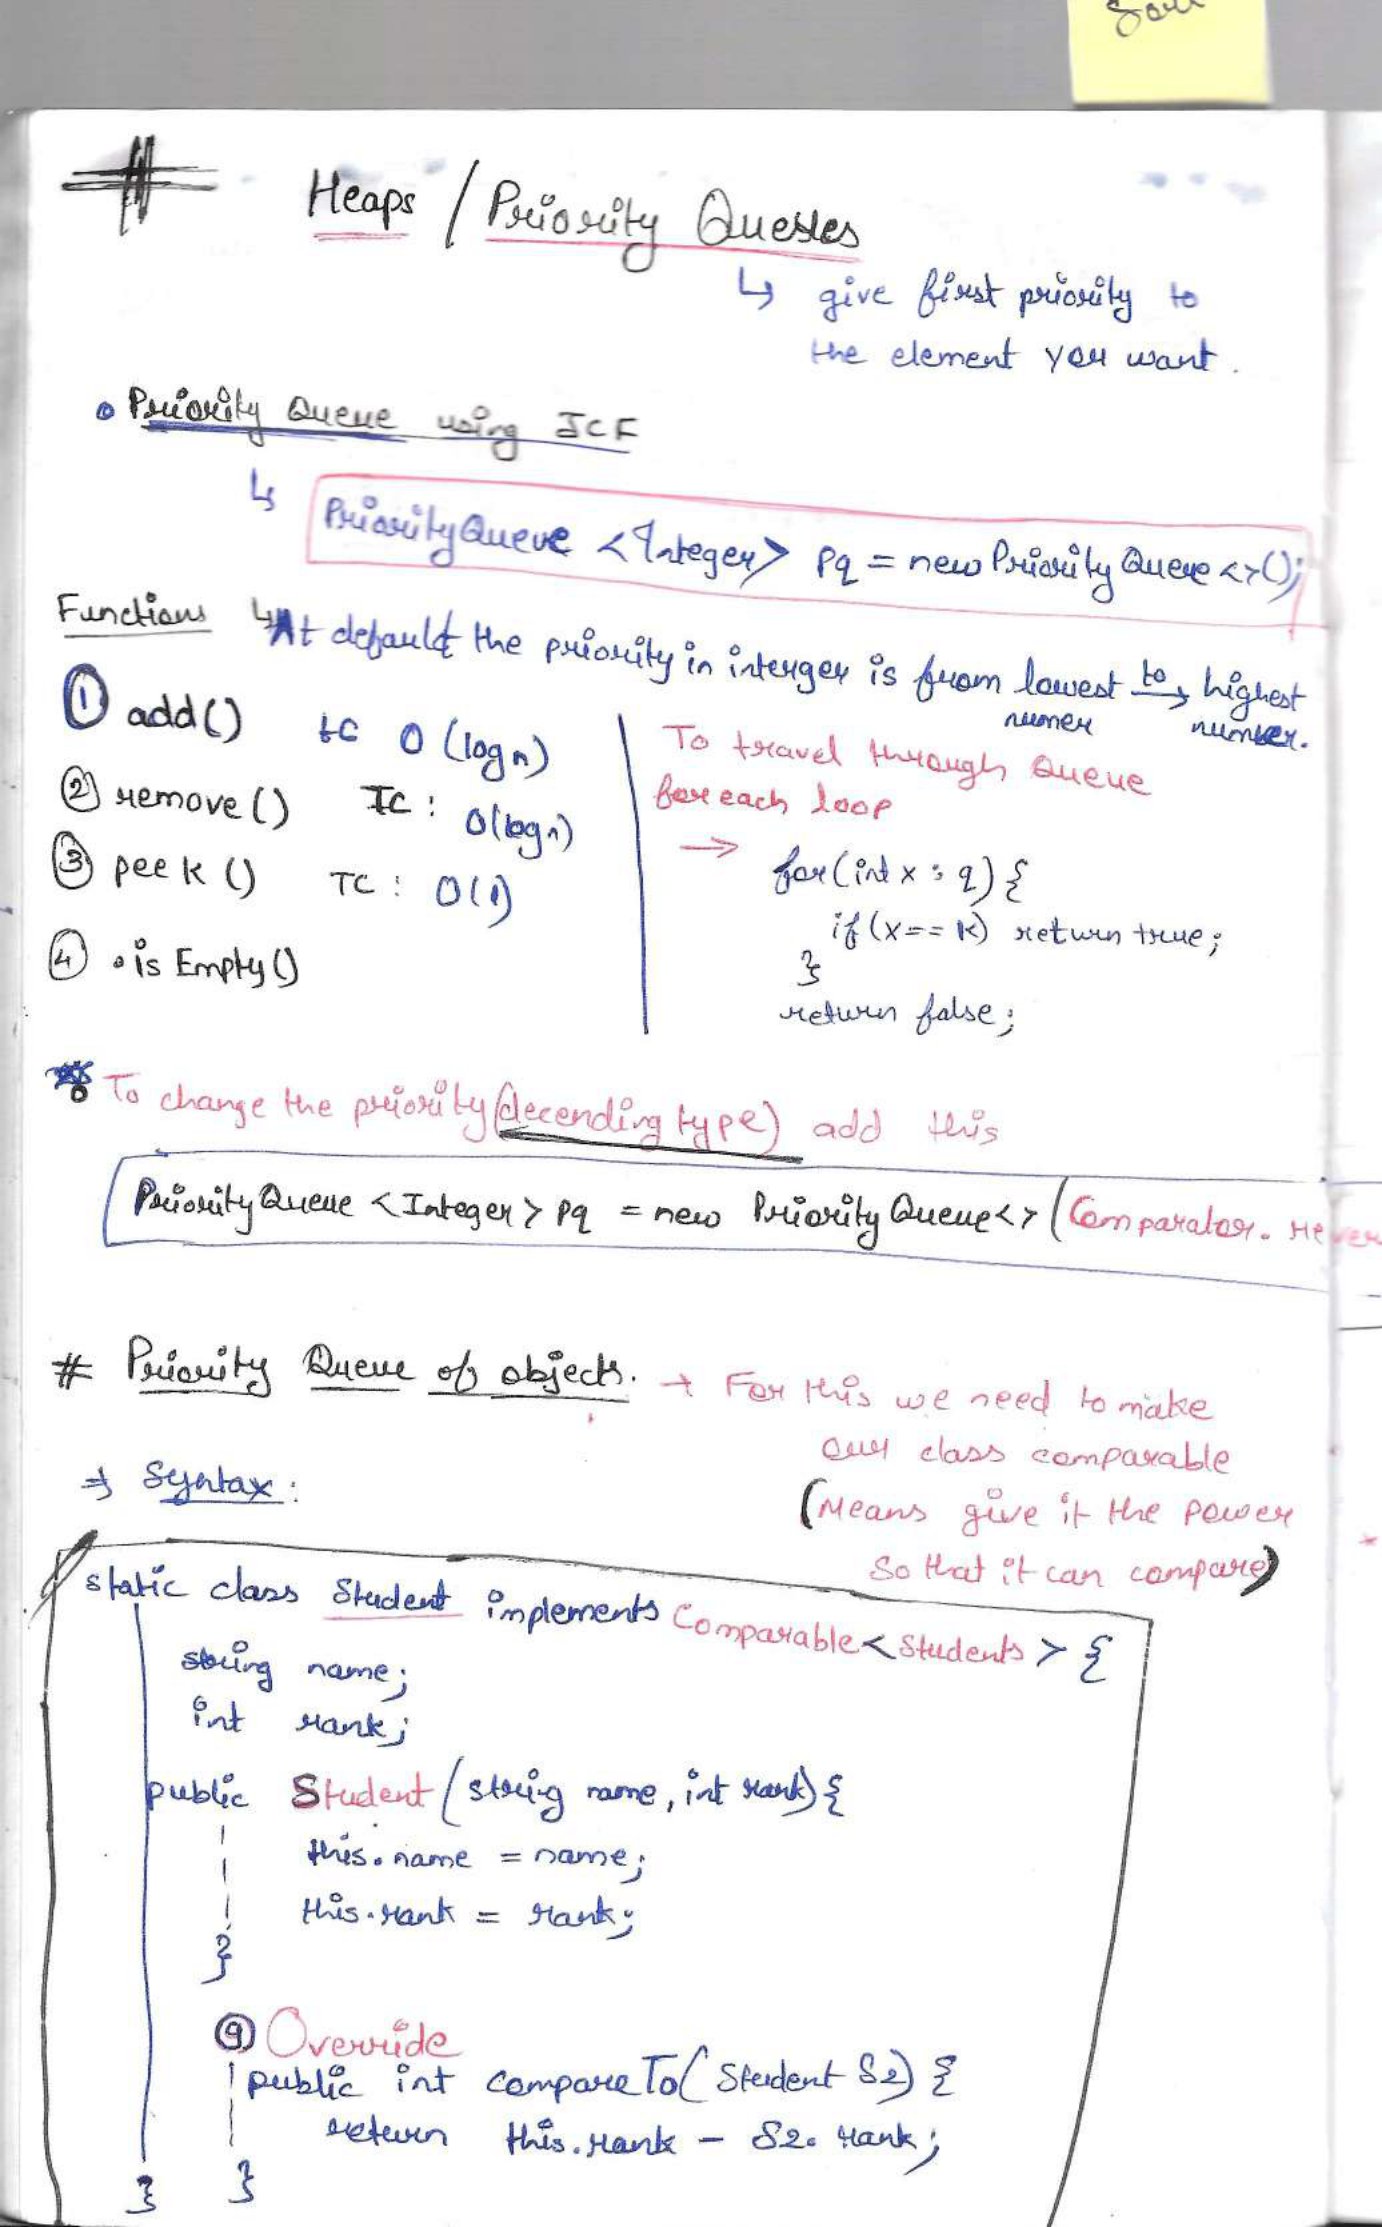 # Heaps / Priority Queues
↳ give first priority to
the element you want.
• Priority Queue using JCF
↳ PriorityQueue <Integer> pq = new PriorityQueue<>();
Functions ↳ At default the priority in interger is from lowest to→ highest
numer number.
① add() tc O(log n)
② remove() TC : O(log n)
③ peek () TC : O(1)
④ .isEmpty()
To travel through Queue
for each loop
→ for(int x : q) {
if (x == k) return true;
}
return false;
To change the priority (decending type) add this
PriorityQueue <Integer> pq = new PriorityQueue<> (Comparator. rever
# Priority Queue of objects. → For this we need to make
our class comparable
(Means give it the power
so that it can compare)
⇒ Syntax :
static class Student implements Comparable<Students> {
string name;
int rank;
public Student (string name, int rank) {
this.name = name;
this.rank = rank;
}
@ Override
public int compareTo( Student S2) {
return this.rank - S2. rank;
}
}